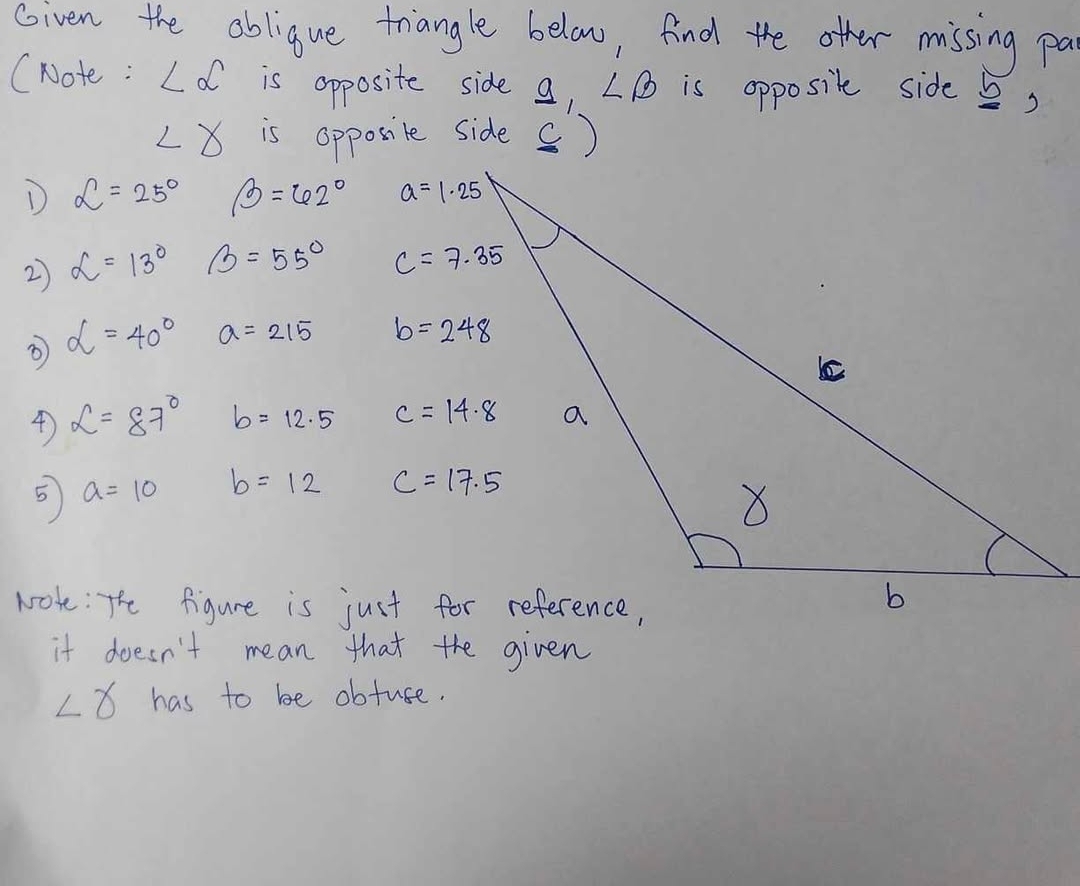 Given the oblique triangle below, find the other missing
(Note : ∠α is opposite side a, ∠β is opposite side b,
∠γ is opposite side c)
1) α = 25° β = 62° a = 1.25
2) α = 13° β = 55° c = 7.35
3) α = 40° a = 215 b = 248
4) α = 87° b = 12.5 c = 14.8
5) a = 10 b = 12 c = 17.5
c
a
γ
b
Note : The figure is just for reference,
it doesn't mean that the given
∠γ has to be obtuse.